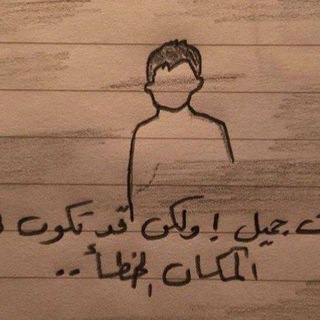 جميل ! ولكن قد تكون
المكان الخطأ ..